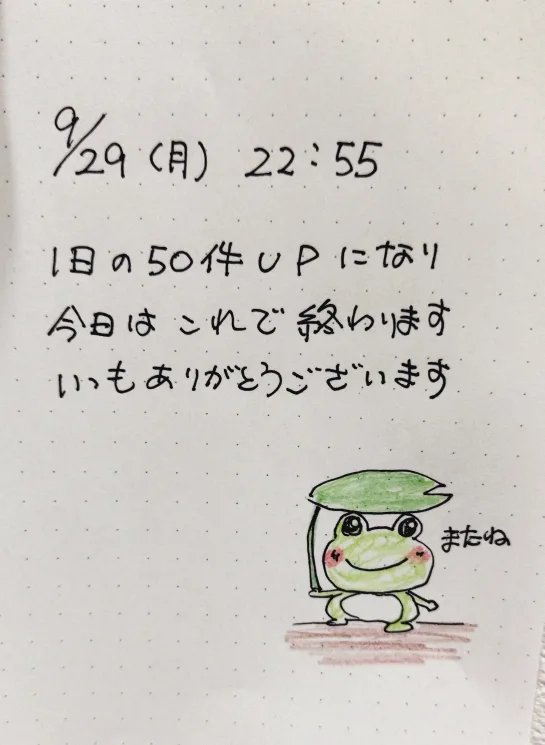 9/29（月） 22:55
1日の50件UPになり
今日はこれで終わります
いつもありがとうございます
またね